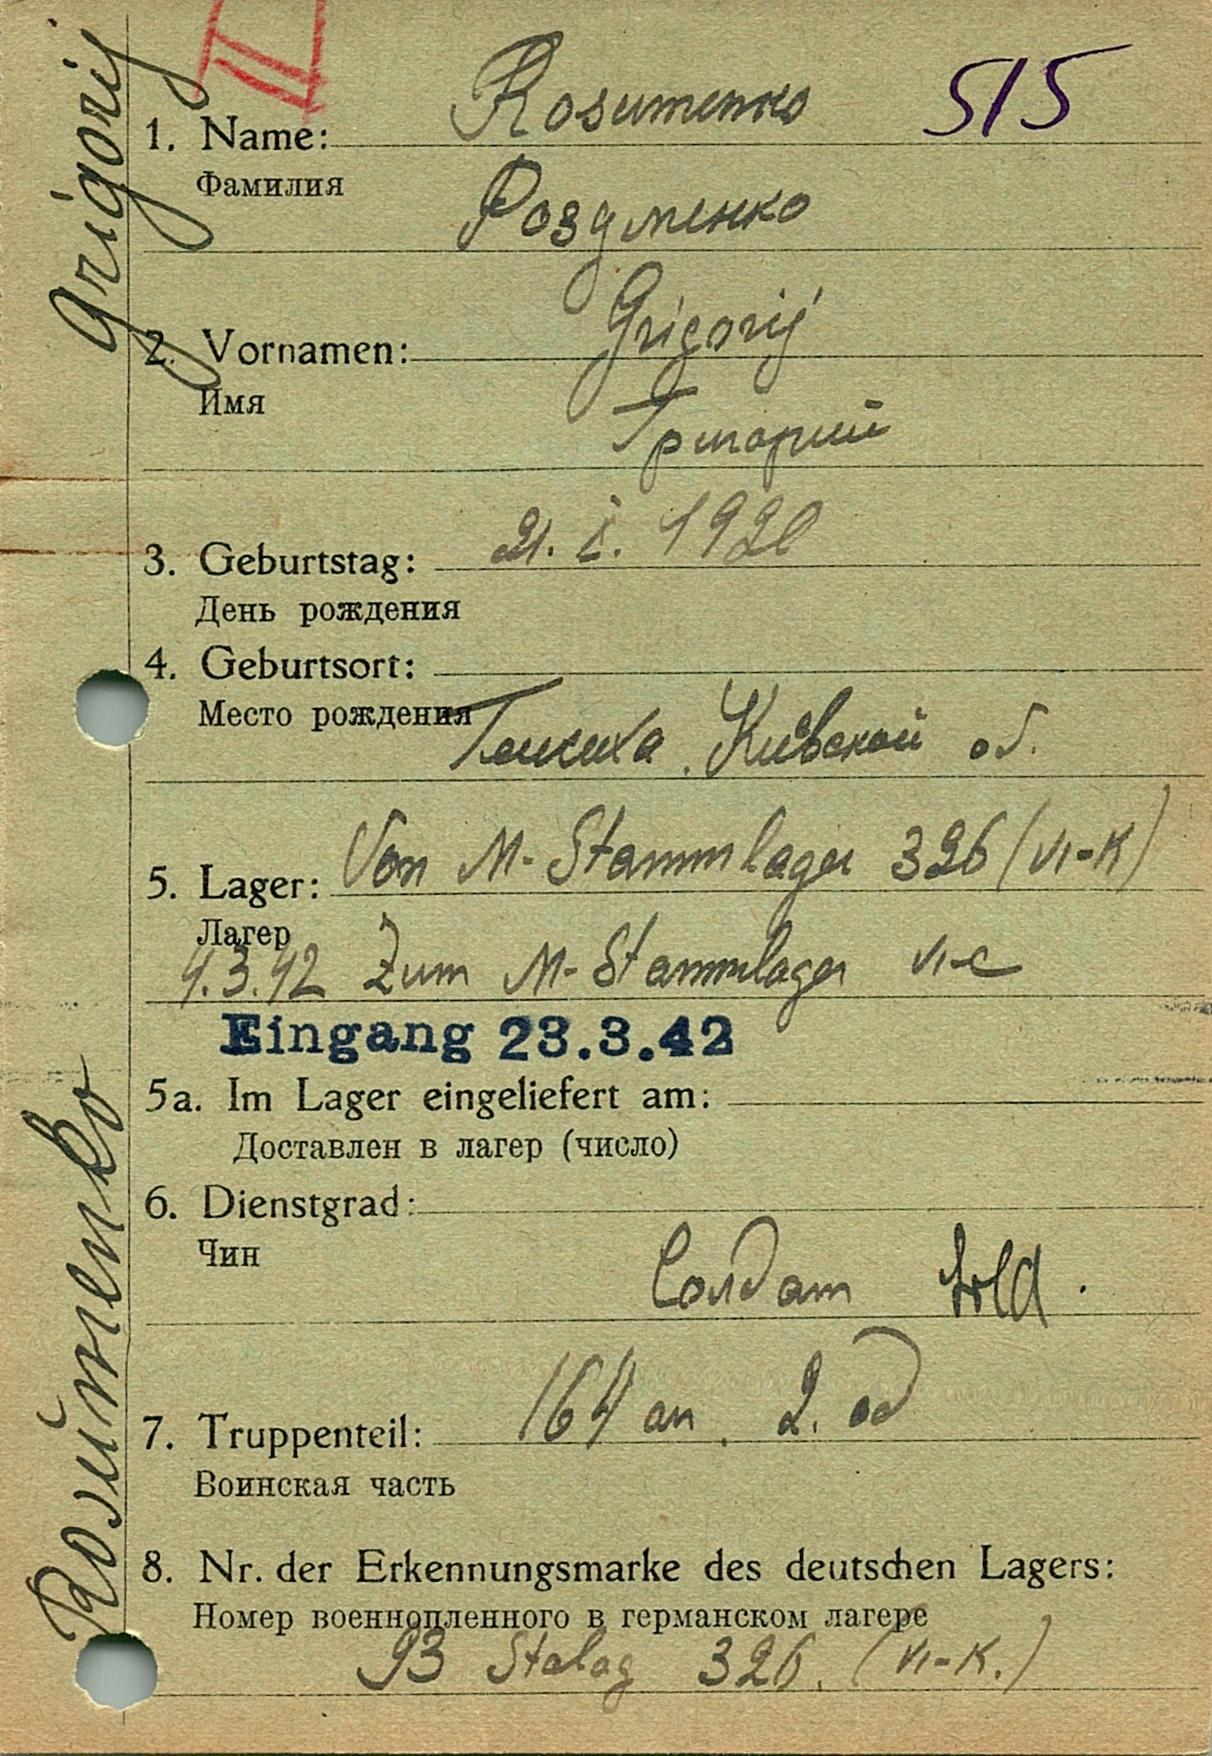 Grigorij
II
515
1. Name: Rosumenko
Фамилия
Розуменко
2. Vornamen: Grigorij
Имя
Григорий
3. Geburtstag: 21. I. 1920
День рождения
4. Geburtsort:
Место рождения
Киевской об.
5. Lager: Von M-Stammlager 326 (VI-K)
Лагер
4.3.42 Zum M-Stammlager VI-C
Eingang 23.3.42
5a. Im Lager eingeliefert am:
Доставлен в лагер (число)
6. Dienstgrad:
Чин
Солдат Sold.
7. Truppenteil: 164 ап. 2.
Воинская часть
8. Nr. der Erkennungsmarke des deutschen Lagers:
Номер военнопленного в германском лагере
93 Stalag 326. (VI-K.)
Rosumenko